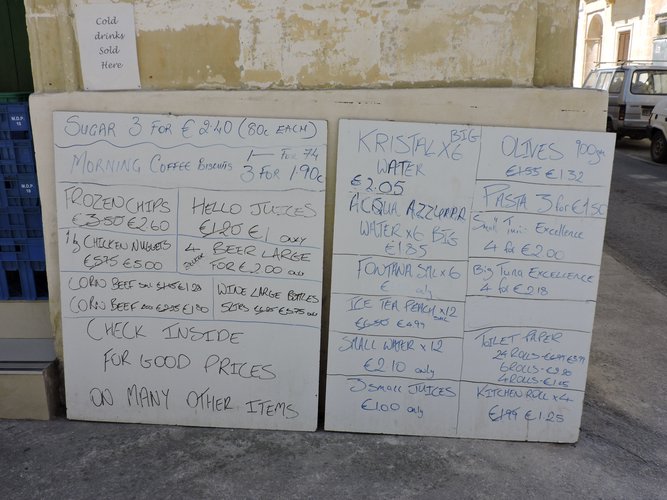 Cold
drinks
Sold
Here
M.D.P.
M.D.P.
SUGAR 3 FOR €2.40 (80c EACH)
MORNING COFFEE BISCUITS 1 FOR 74
3 FOR 1.90c
FROZEN CHIPS
€3.50 €2.60
HELLO JUICES
€1.20 €1 ONLY
1kg CHICKEN NUGGETS
€5.75 €5.00
4 BEER LARGE
FOR €2.00 ONLY
CORN BEEF
CORN BEEF
WINE LARGE BOTTLES
CHECK INSIDE
FOR GOOD PRICES
ON MANY OTHER ITEMS
KRISTAL X6 BIG
WATER
€2.05
ACQUA AZZURRA
WATER x6 BIG
€1.85
FONTANA STILL x 6
€ only
ICE TEA PEACH x 12
€6.50 €4.99
SMALL WATER x 12
€2.10 only
3 SMALL JUICES
€1.00 only
OLIVES 900gm
€1.55 €1.32
PASTA 3 for €1.50
Small Tuna Excellence
4 for €2.00
Big Tuna Excellence
4 for €2.18
TOILET PAPER
24 ROLLS
6 ROLLS
4 ROLLS
KITCHEN ROLL x 4
€1.99 €1.25